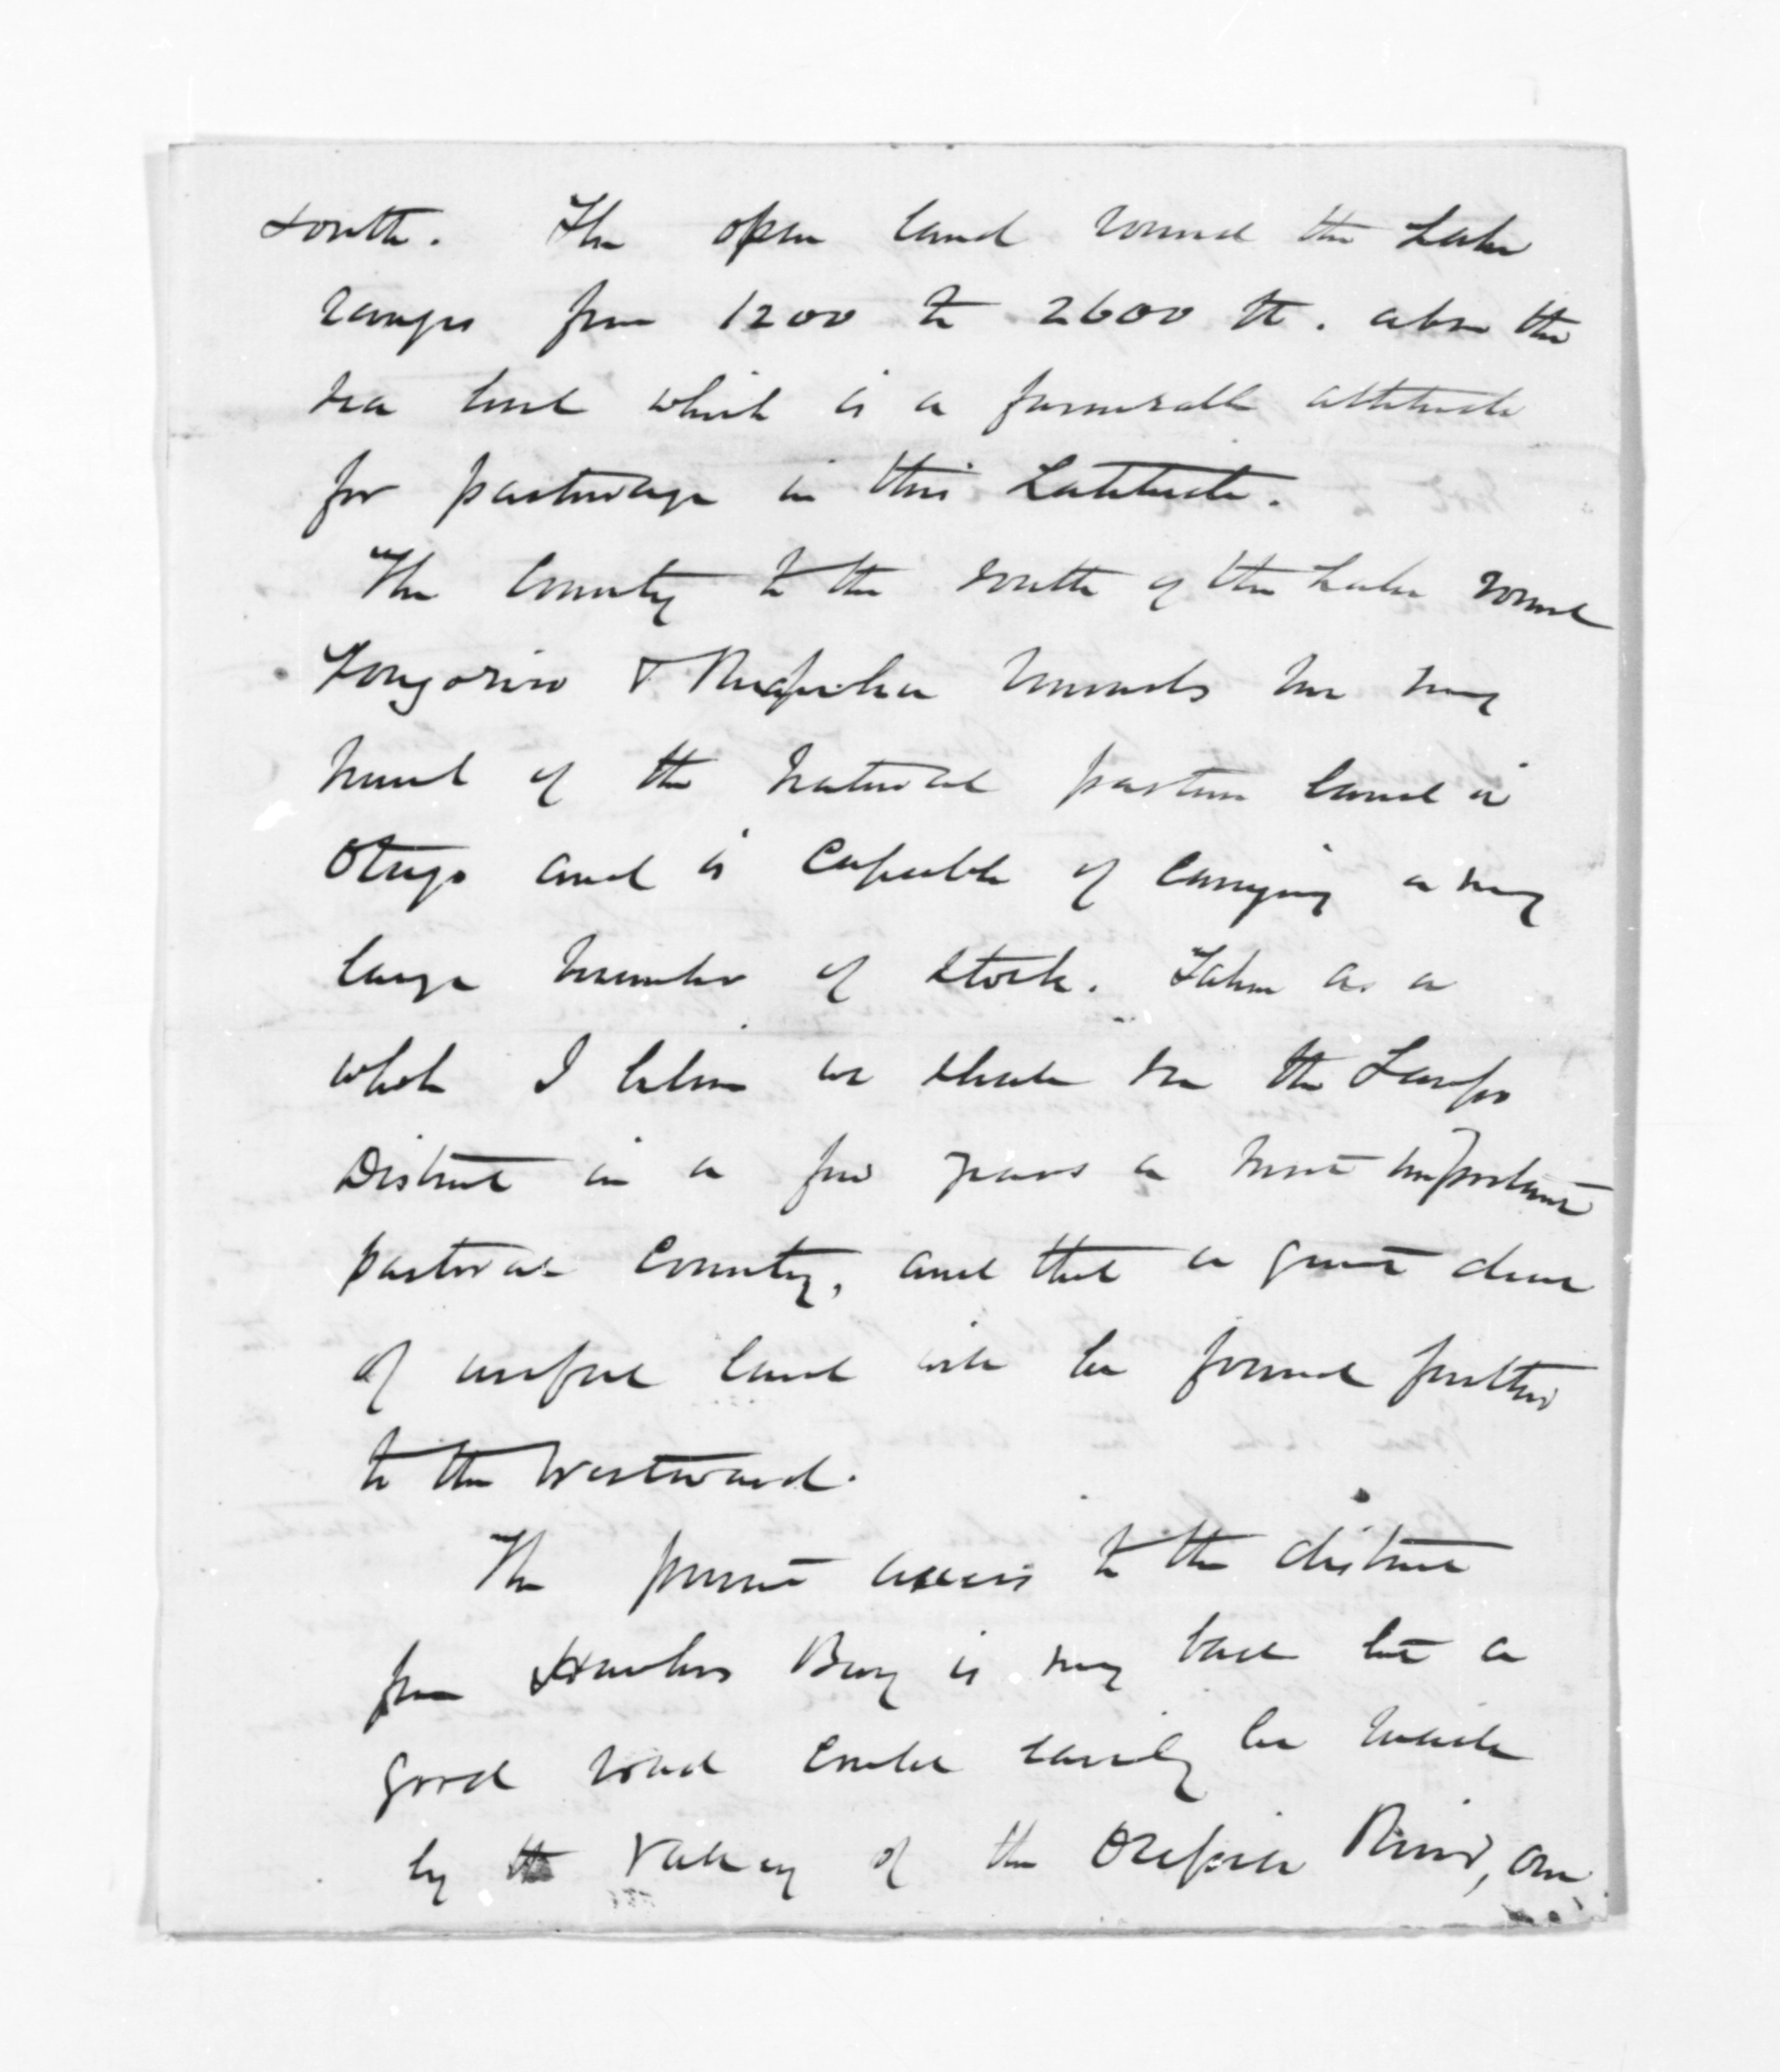 south. The open land round the Lake
ranges from 1200 to 2600 ft. above the
sea level which is a favourable altitude
for pasturage in this Latitude.
The Country to the south of the Lake round
Tongariro & Ruapehu reminds me very
much of the natural pasture land in
Otago and is capable of carrying a very
large number of stock. Taken as a
whole I believe we shall see the Taupo
District in a few years a most important
pastoral Country, and that a great deal
of useful land will be found further
to the Westward.
The present access to the district
from Hawkes Bay is very bad but a
good road could easily be made
by the Valley of the River, one